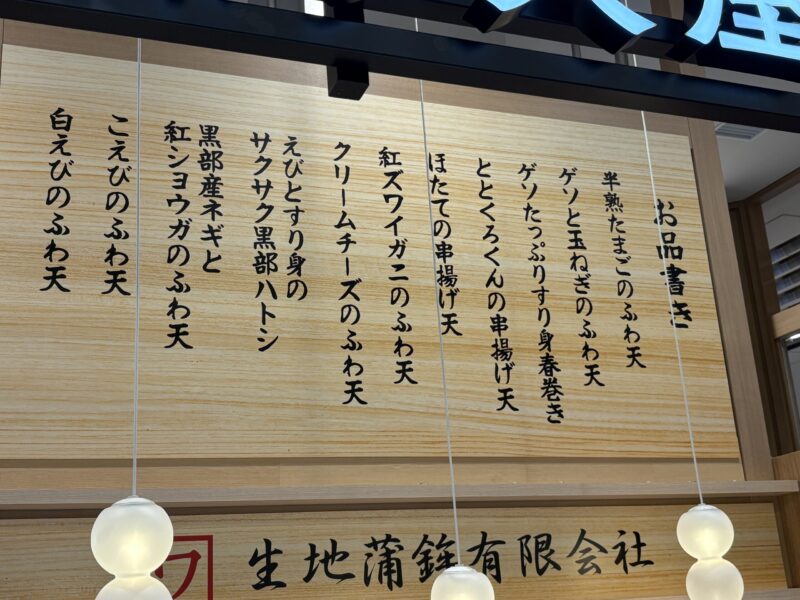 お品書き
半熟たまごのふわ天
ゲソと玉ねぎのふわ天
ゲソたっぷりすり身春巻き
ととくろくんの串揚げ天
ほたての串揚げ天
紅ズワイガニのふわ天
クリームチーズのふわ天
えびとすり身の
サクサク黒部ハトシ
黒部産ネギと
紅ショウガのふわ天
こえびのふわ天
白えびのふわ天
生地蒲鉾有限会社